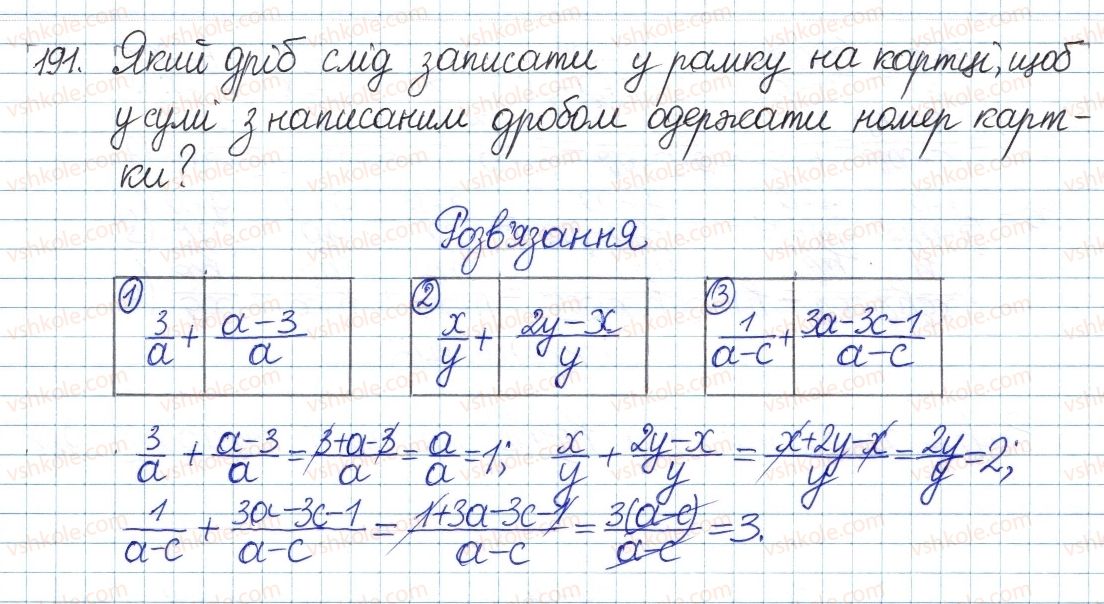 191. Який дріб слід записати у рамку на картці, щоб
у сумі з написаним дробом одержати номер карт-
ки?
Розв'язання
1 3/a + (a-3)/a 2 x/y + (2y-x)/y 3 1/(a-c) + (3a-3c-1)/(a-c)
3/a + (a-3)/a = (3+a-3)/a = a/a = 1; x/y + (2y-x)/y = (x+2y-x)/y = 2y/y = 2;
1/(a-c) + (3a-3c-1)/(a-c) = (1+3a-3c-1)/(a-c) = 3(a-c)/(a-c) = 3.